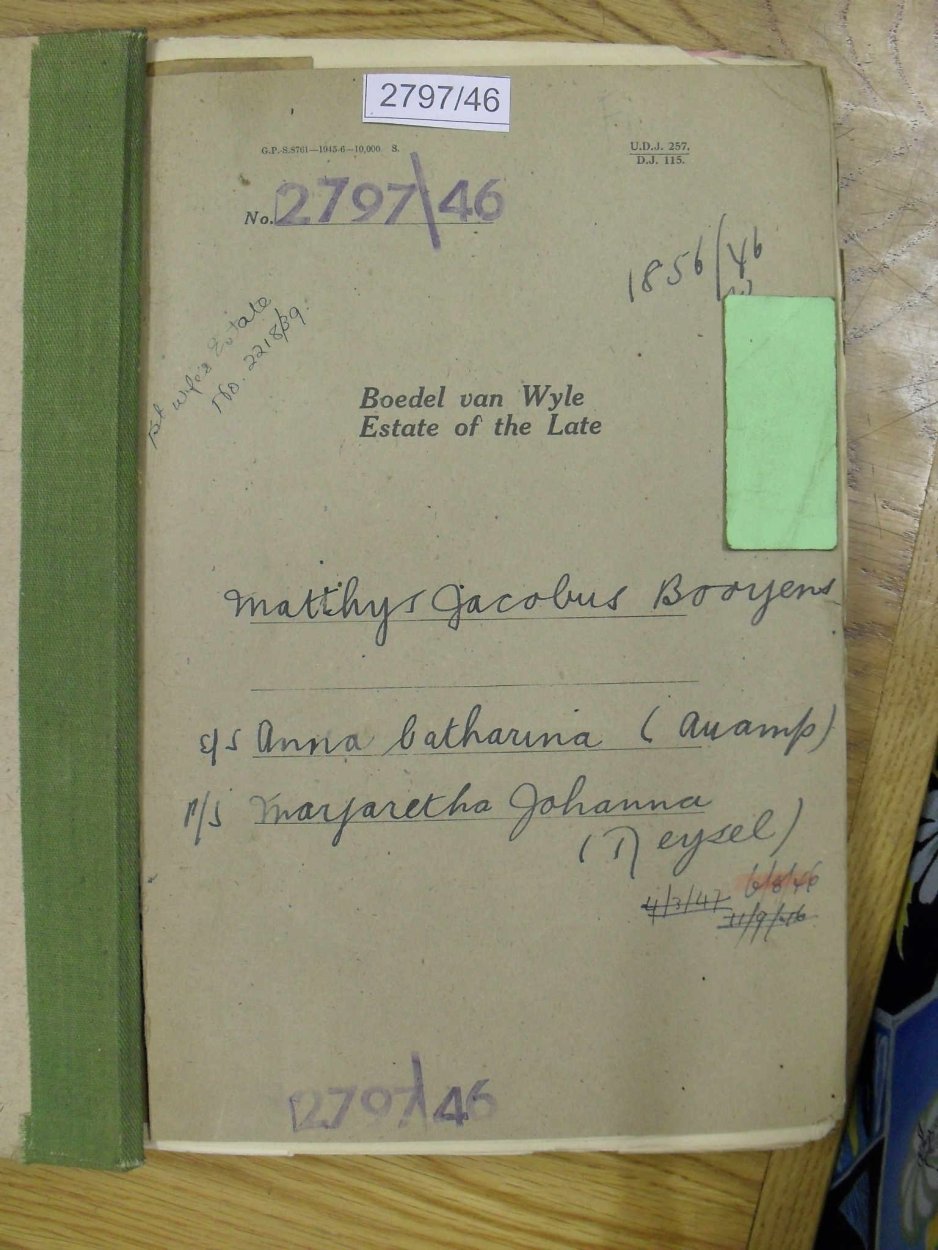 2797/46
G.P.-S.8761—1945-6—10,000 S.
U.D.J. 257.
D.J. 115.
No. 2797/46
1856/46
1st wife's Estate
No. 2218/39.
Boedel van Wyle
Estate of the Late
Matthys Jacobus Booyens
s/s Anna Catharina (Auamp)
p/s Margaretha Johanna
(Neysel)
4/3/47 6/8/46
11/9/46
2797/46